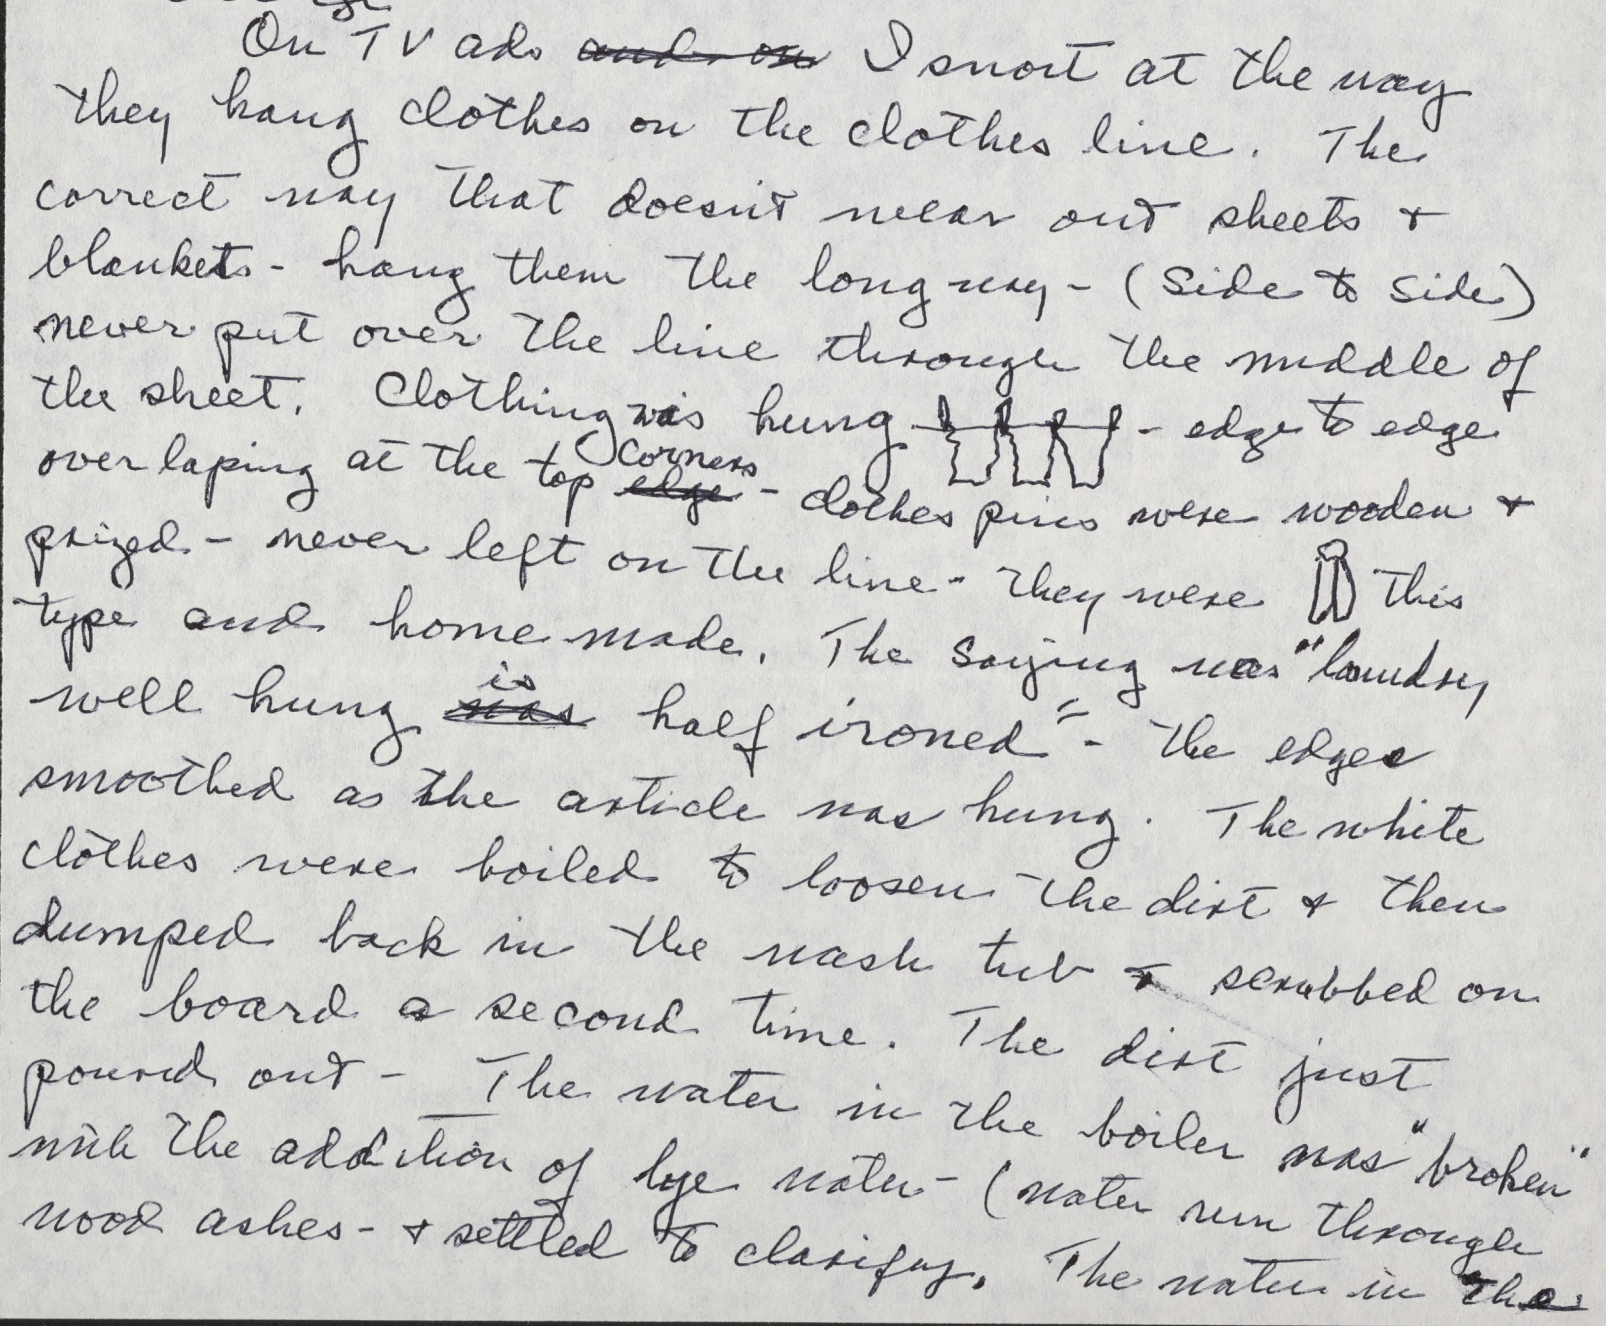 On TV ads and on I snort at the way
they hang clothes on the clothes line. The
correct way that doesn't wear out sheets +
blankets - hang them the long way - (Side to Side)
never put over the line through the middle of
the sheet. Clothing was hung - edge to edge
overlaping at the top edge corners - clothes pins were wooden +
prized - never left on the line - they were this
type and home made. The saying was "laundry
well hung was is half ironed" - the edges
smoothed as the article was hung. The white
clothes were boiled to loosen the dirt + then
dumped back in the wash tub + scrubbed on
the board a second time. The dirt just
poured out - The water in the boiler was "broken"
with the addition of lye water - (water run through
wood ashes - + settled to clarify. The water in the